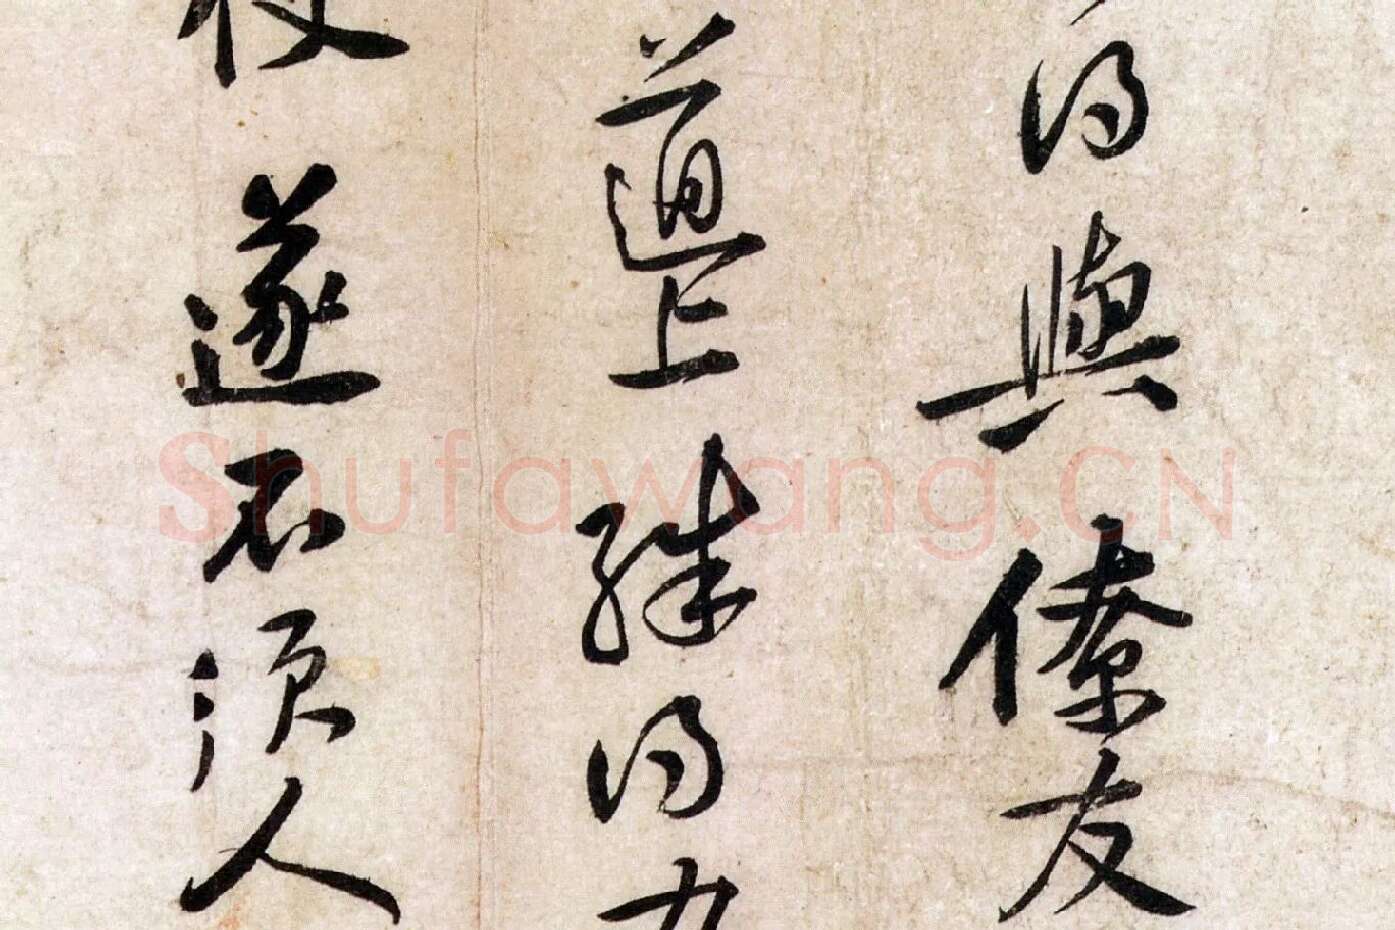 得與僚友
道上殊得力
遂不須人
Shufawang.CN